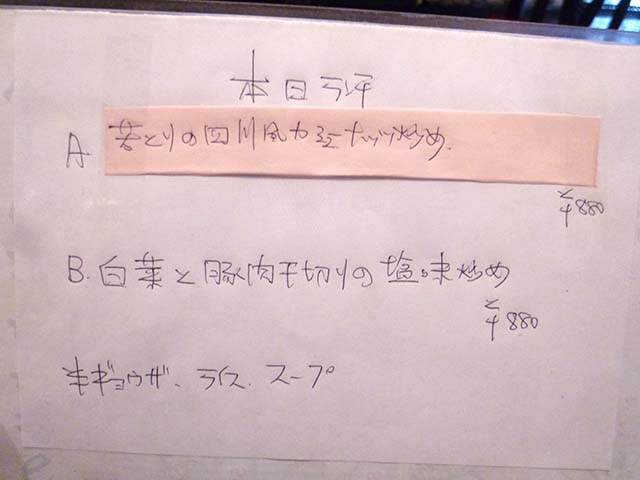 本日ランチ
A 若とりの四川風カシューナッツ炒め.
¥880
B. 白菜と豚肉千切りの塩味炒め
¥880
半ギョウザ、ライス、スープ